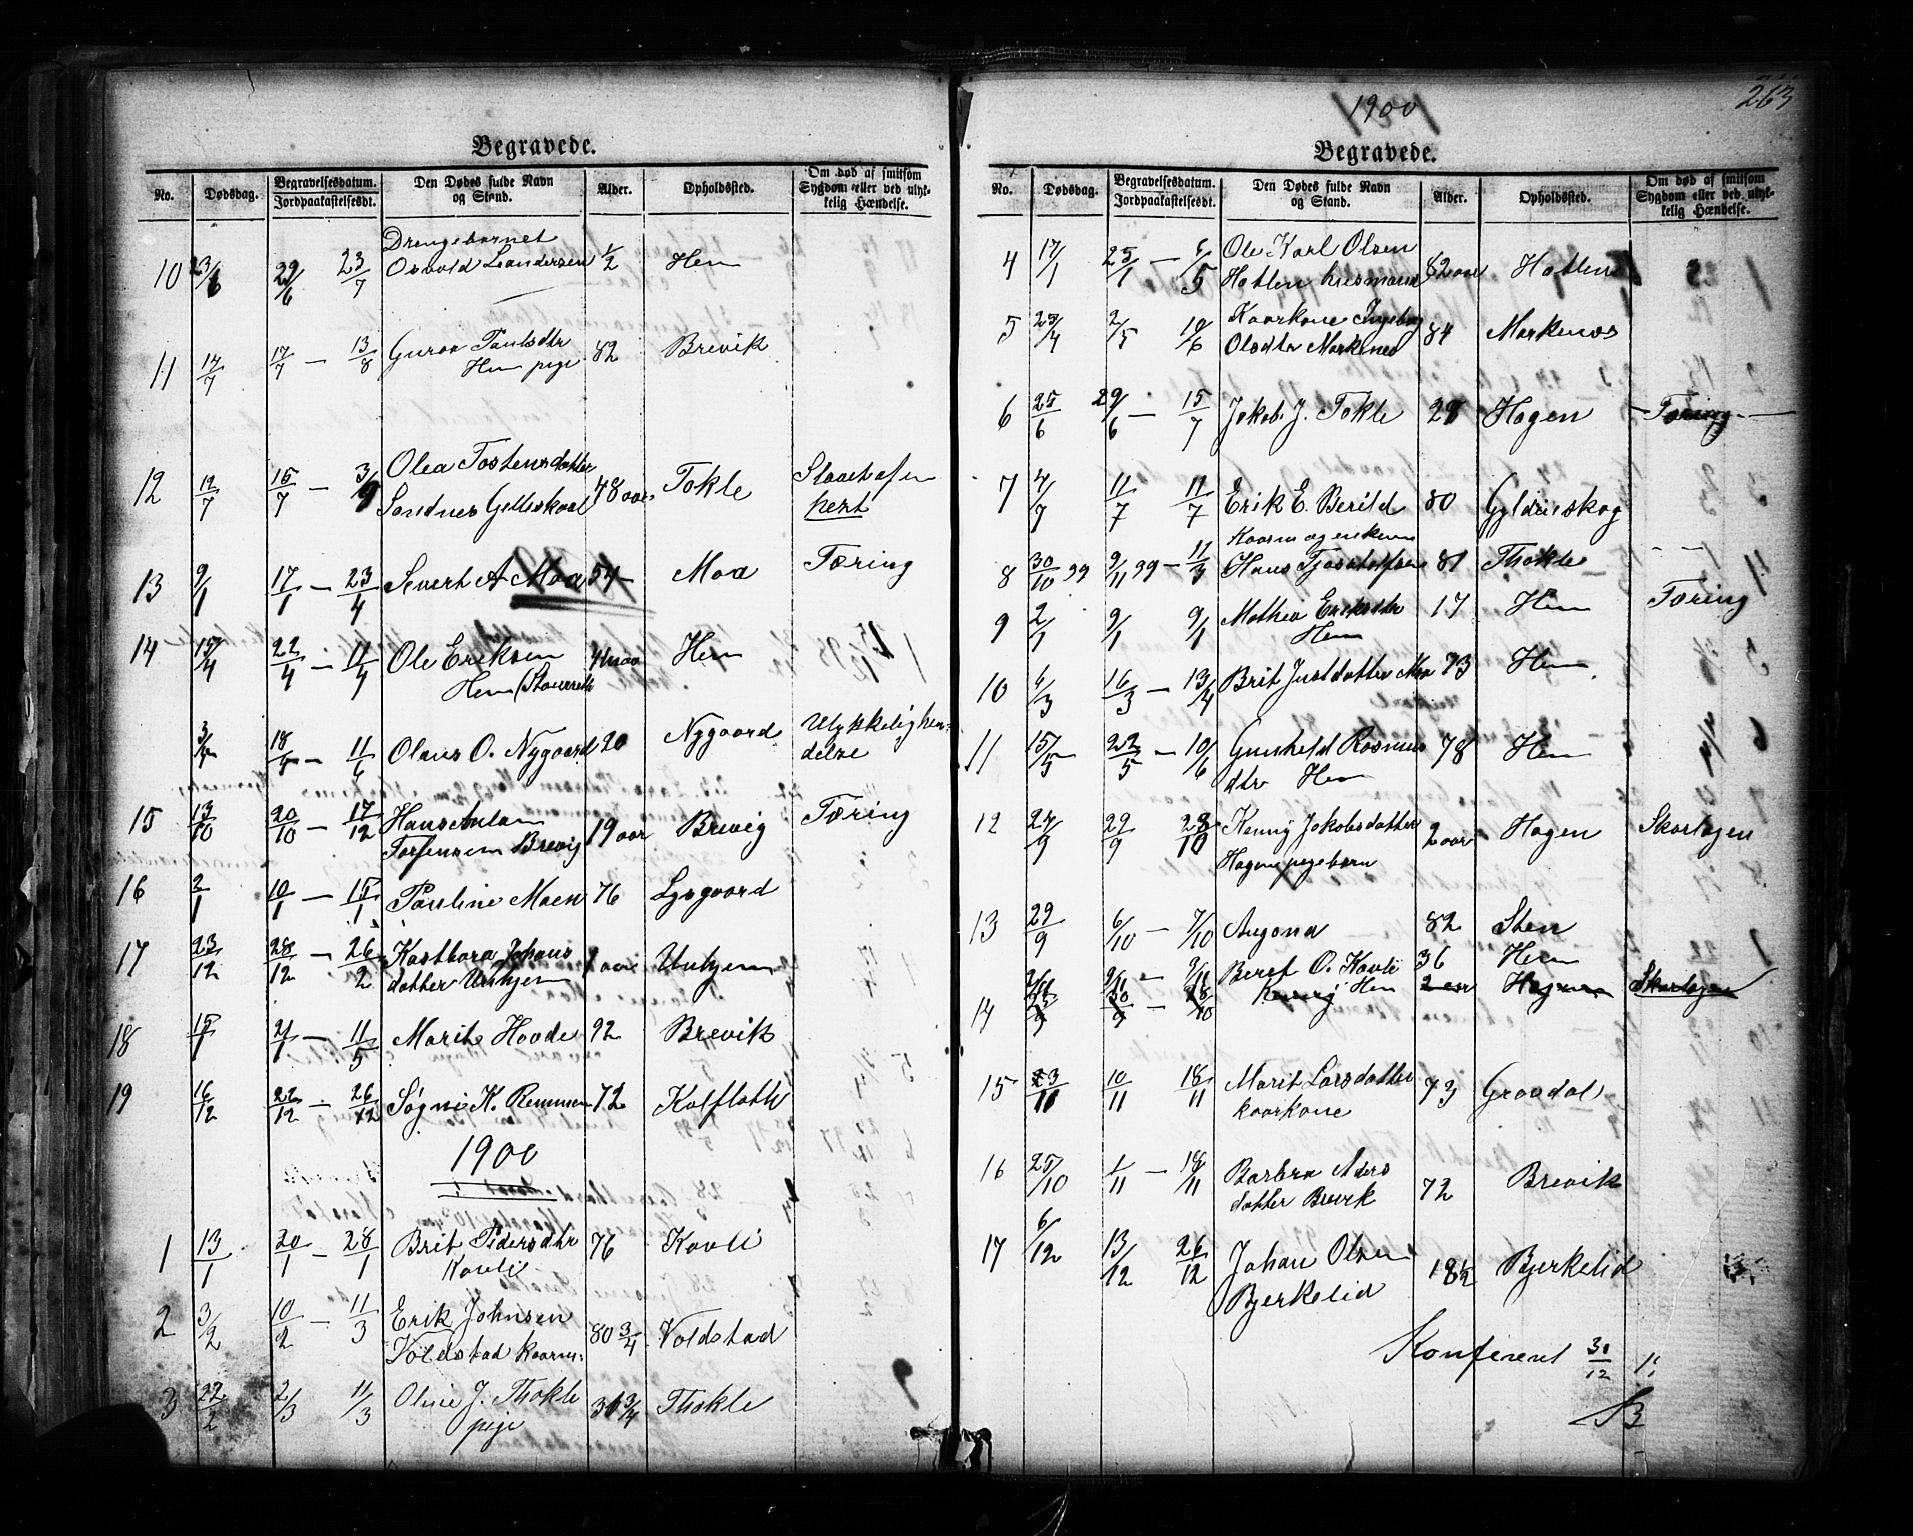 Begravede.
No. Dødsdag. Begravelsesdatum. Jordpaakastelsesdt. Den Dødes fulde Navn og Stand. Alder. Opholdssted. Om død af smitsom Sygdom eller ved ulyk-kelig Hændelse.
Drengebarnet
10 23/6 29/6 23/7 Osvold Leandersen 1/2 Hem
11 14/7 17/7 — 13/8 Guroa Paulsdtr 82 Brevik
Hem pige
12 12/7 15/7 — 3/9 Olea Tostensdatter 48 aar Tokle
Sandnes
13 9/1 17/1 — 23/4 Sivert A Moa 54 Moa Tæring
14 15/4 22/4 — 11/4 Ole Eriksen Hem
Hem
18/5 — 11/6 Olaus O. Nygaard 20 Nygaard Ulykkelighen-
delse
15 13/10 20/10 — 17/12 Hans Anton 19 aar Brevig Tæring
Brevig
16 2/1 10/1 — 15/1 Pauline Moen 76 Lysgaard
17 23/12 28/12 — 26/2 Johans 1 aar Unhjem
datter Unhjem
18 15/1 21/1 — 11/5 Marit Hovde 92 Brevik
19 16/12 22/12 — 26/12 Søgni K. Remmen 72 Kolfloth
1900
1 13/1 20/1 — 28/1 Brit Pedersdtr 76 Kovli
Kovli
2 3/2 10/2 — 11/3 Erik Johnsen 80 3/4 Voldstad
Voldstad kaarm.
3 22/2 2/3 11/3 Oline J. Thokle 36 3/4 Thokle
pige
263
1900
Begravede.
No. Dødsdag. Begravelsesdatum. Jordpaakastelsesdt. Den Dødes fulde Navn og Stand. Alder. Opholdssted. Om død af smitsom Sygdom eller ved ulyk-kelig Hændelse.
4 17/1 25/1 — 6/5 Ole Karl Olsen 82 aar Hatlen
Hatlen husmand
5 23/4 2/5 10/6 Kaarkone Ingebog 84 Markenæs
Olsdtr Markenes
6 25/6 29/6 — 15/7 Jakob J. Tokle 28 Hagen Tæring
7 4/7 11/7 11/7 Erik E. Berild 80 Gyldenskog
Kaarm og enkem
8 30/10 99 9/11 99 — 11/3 Hans 81 Thokle
9 2/1 9/1 9/1 Mathea Eriksdtr 17 Hem Tæring
Hem
10 6/3 16/3 — 13/4 Brit Justdatter Moa 73 Hem
11 15/5 22/5 — 10/6 Gunhild Rasmus 78 Hem
dtr Hem
12 24/9 29/9 28/10 Kenny Jakobsdatter 2 aar Hagen Skarlagen
Hagen pigebarn
13 29/9 6/10 — 7/10 82 Sten
9/11 — 9/11 Beret O. Kovli 36 Hem
14 23/9 30/9 — 28/10 Kenny Hem 2 aar Hagen Skarlagen
15 3/11 10/11 18/11 Marit Larsdatter 73 Gravdal
kaarkone
16 25/10 1/11 — 18/11 Barbra Aders 72 Brevik
datter Brevik
17 6/12 13/12 26/12 Johan Olsen 18 1/2 Bjerkelid
Bjerkelid
Konfereret 31/12